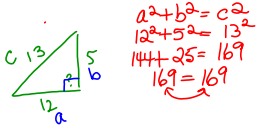 c 13
5
b
12
a
a²+b²=c²
12²+5²=13²
144+25=169
169=169